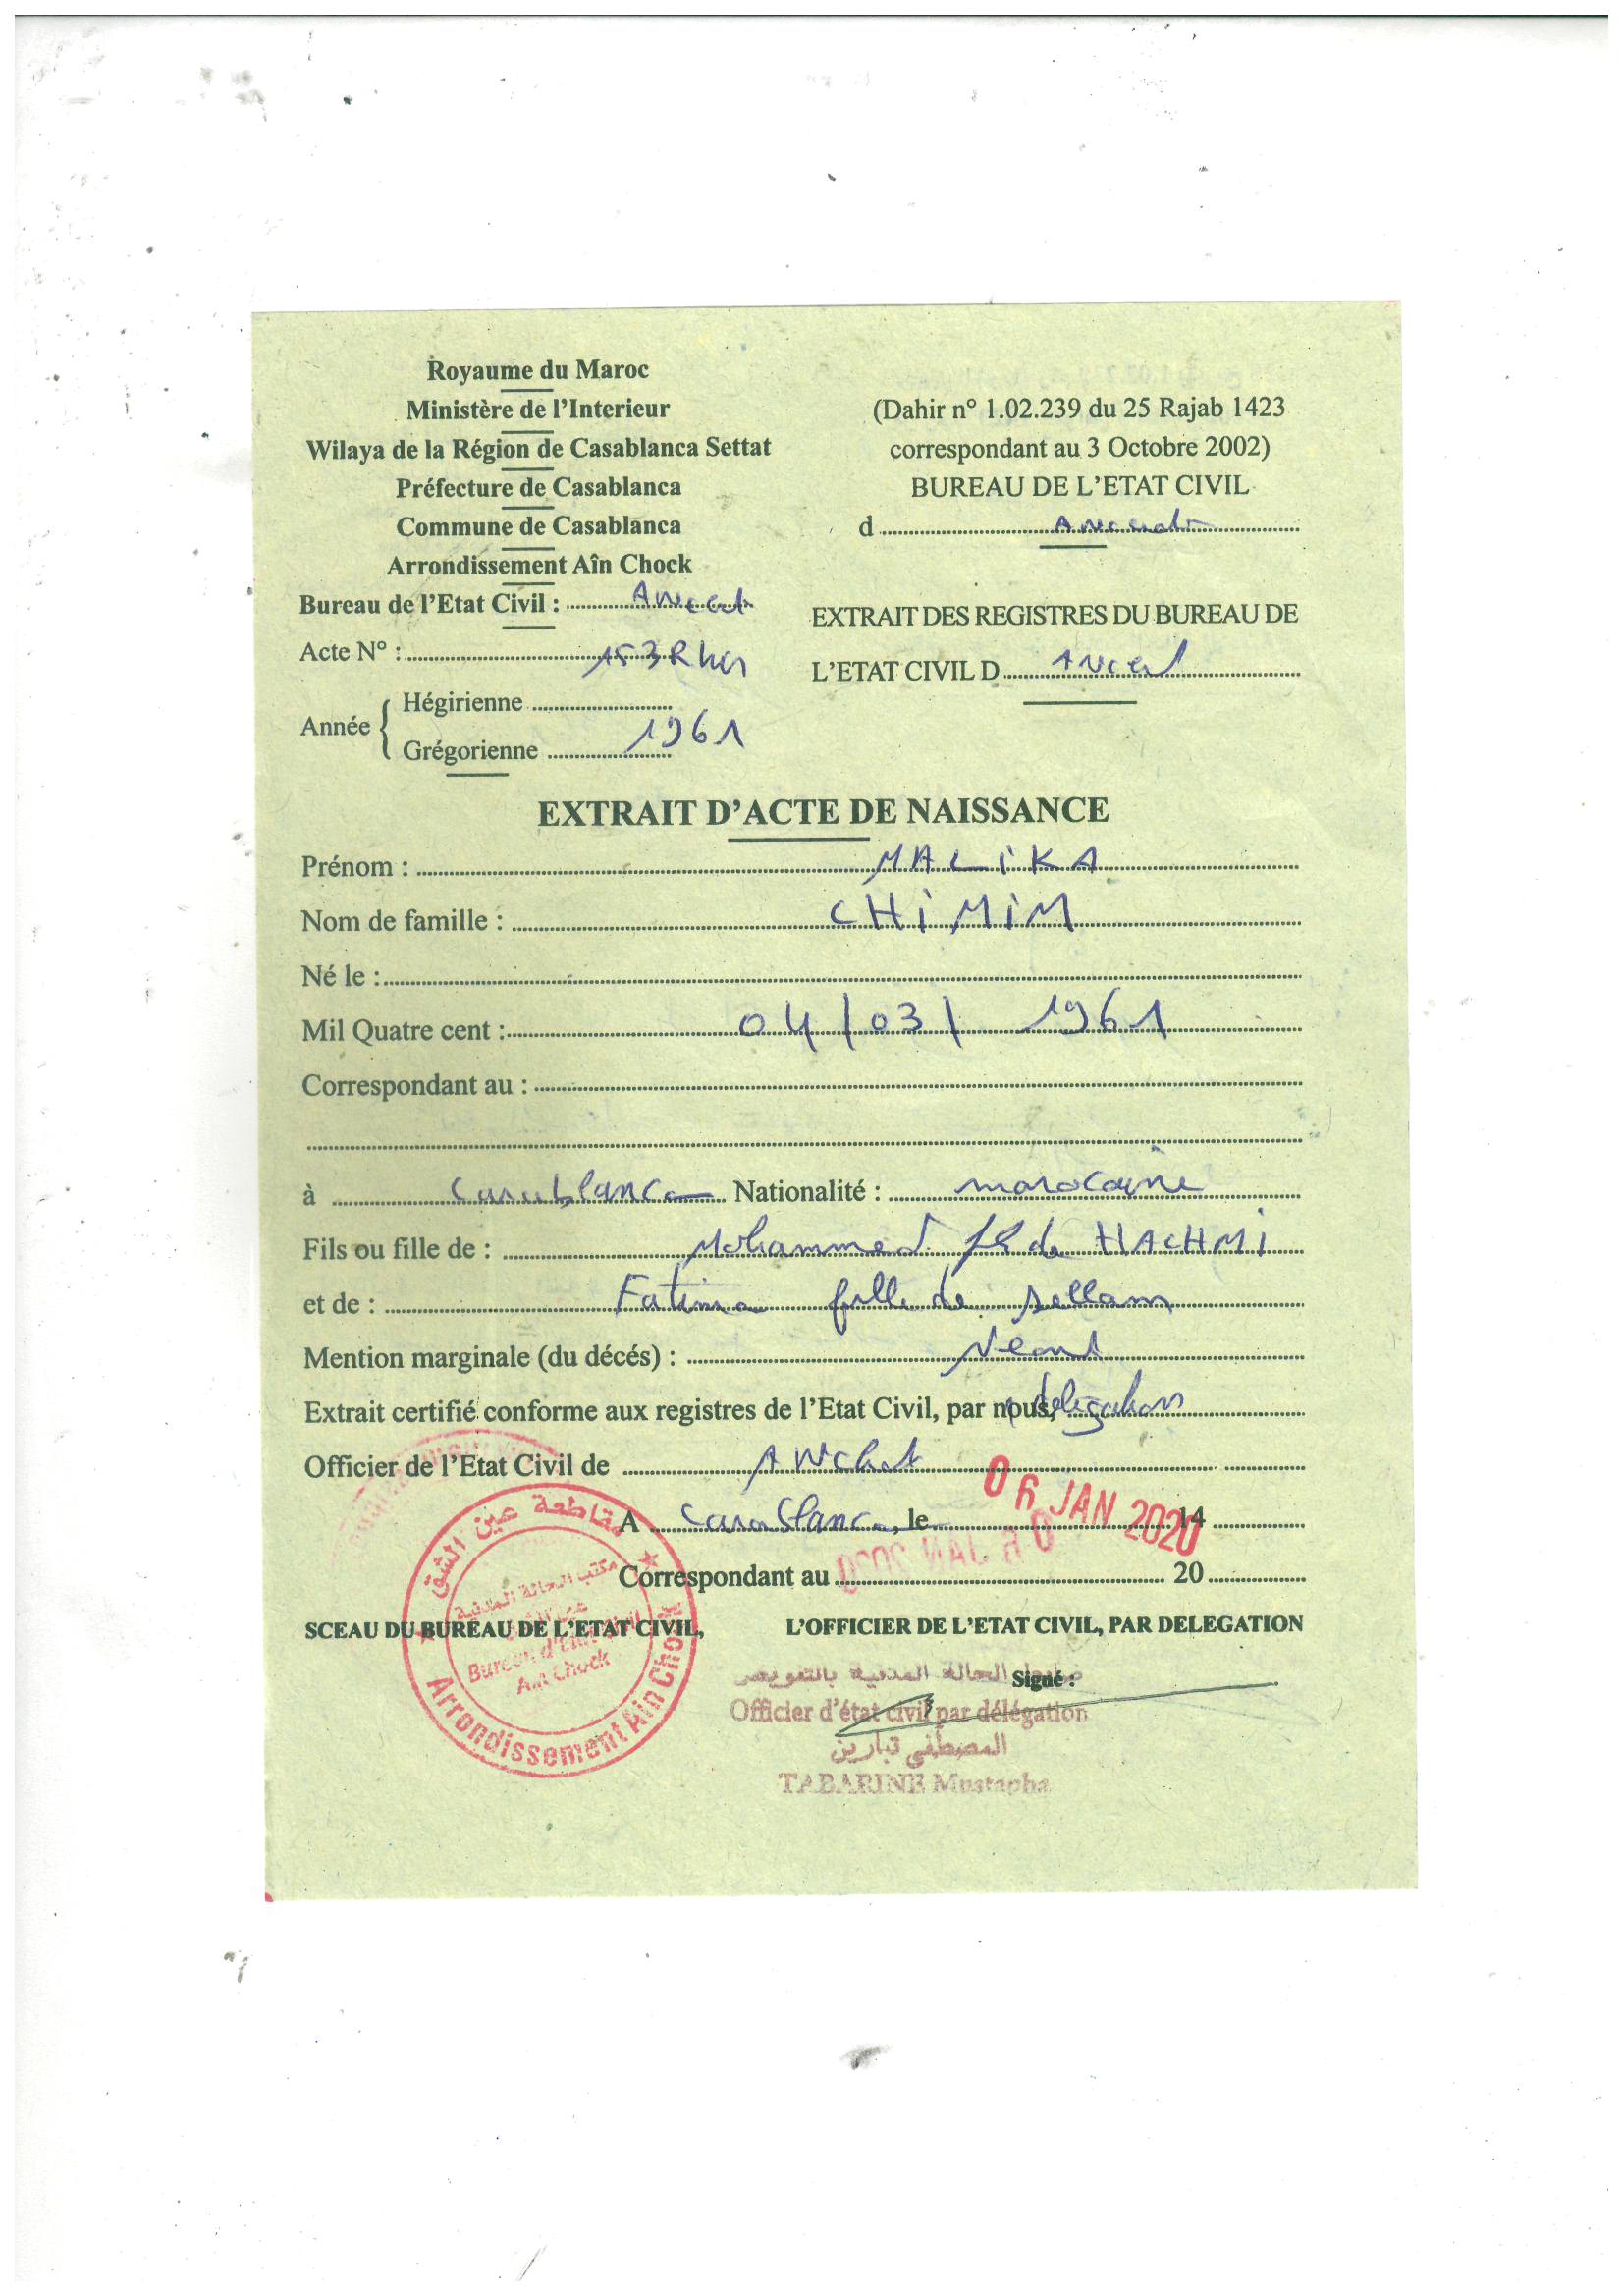 Royaume du Maroc
Ministère de l'Interieur
Wilaya de la Région de Casablanca Settat
Préfecture de Casablanca
Commune de Casablanca
Arrondissement Aîn Chock
Bureau de l'Etat Civil :
Acte N° : 153
Année
Hégirienne
Grégorienne 1961
(Dahir n° 1.02.239 du 25 Rajab 1423
correspondant au 3 Octobre 2002)
BUREAU DE L'ETAT CIVIL
d
EXTRAIT DES REGISTRES DU BUREAU DE
L'ETAT CIVIL D
EXTRAIT D'ACTE DE NAISSANCE
Prénom : MALIKA
Nom de famille : CHIMIM
Né le :
Mil Quatre cent : 04/03/ 1961
Correspondant au :
à Casablanca Nationalité : marocaine
Fils ou fille de : Mohammed fils de HACHMI
et de : Fatima fille de Sellam
Mention marginale (du décés) : Néant
Extrait certifié conforme aux registres de l'Etat Civil, par nous, délégation
Officier de l'Etat Civil de
A Casablanca, le 06 JAN 2020 14
Correspondant au 20
SCEAU DU BUREAU DE L'ETAT CIVIL,
L'OFFICIER DE L'ETAT CIVIL, PAR DELEGATION
Signé :
مقاطعة عين الشق
مكتب الحالة المدنية
عين الشق
Bureau d'Etat Civil
Ain Chock
Arrondissement Ain Chock
ضابط الحالة المدنية بالتفويض
Officier d'état civil par délégation
المصطفى تبارين
TABARINE Mustapha